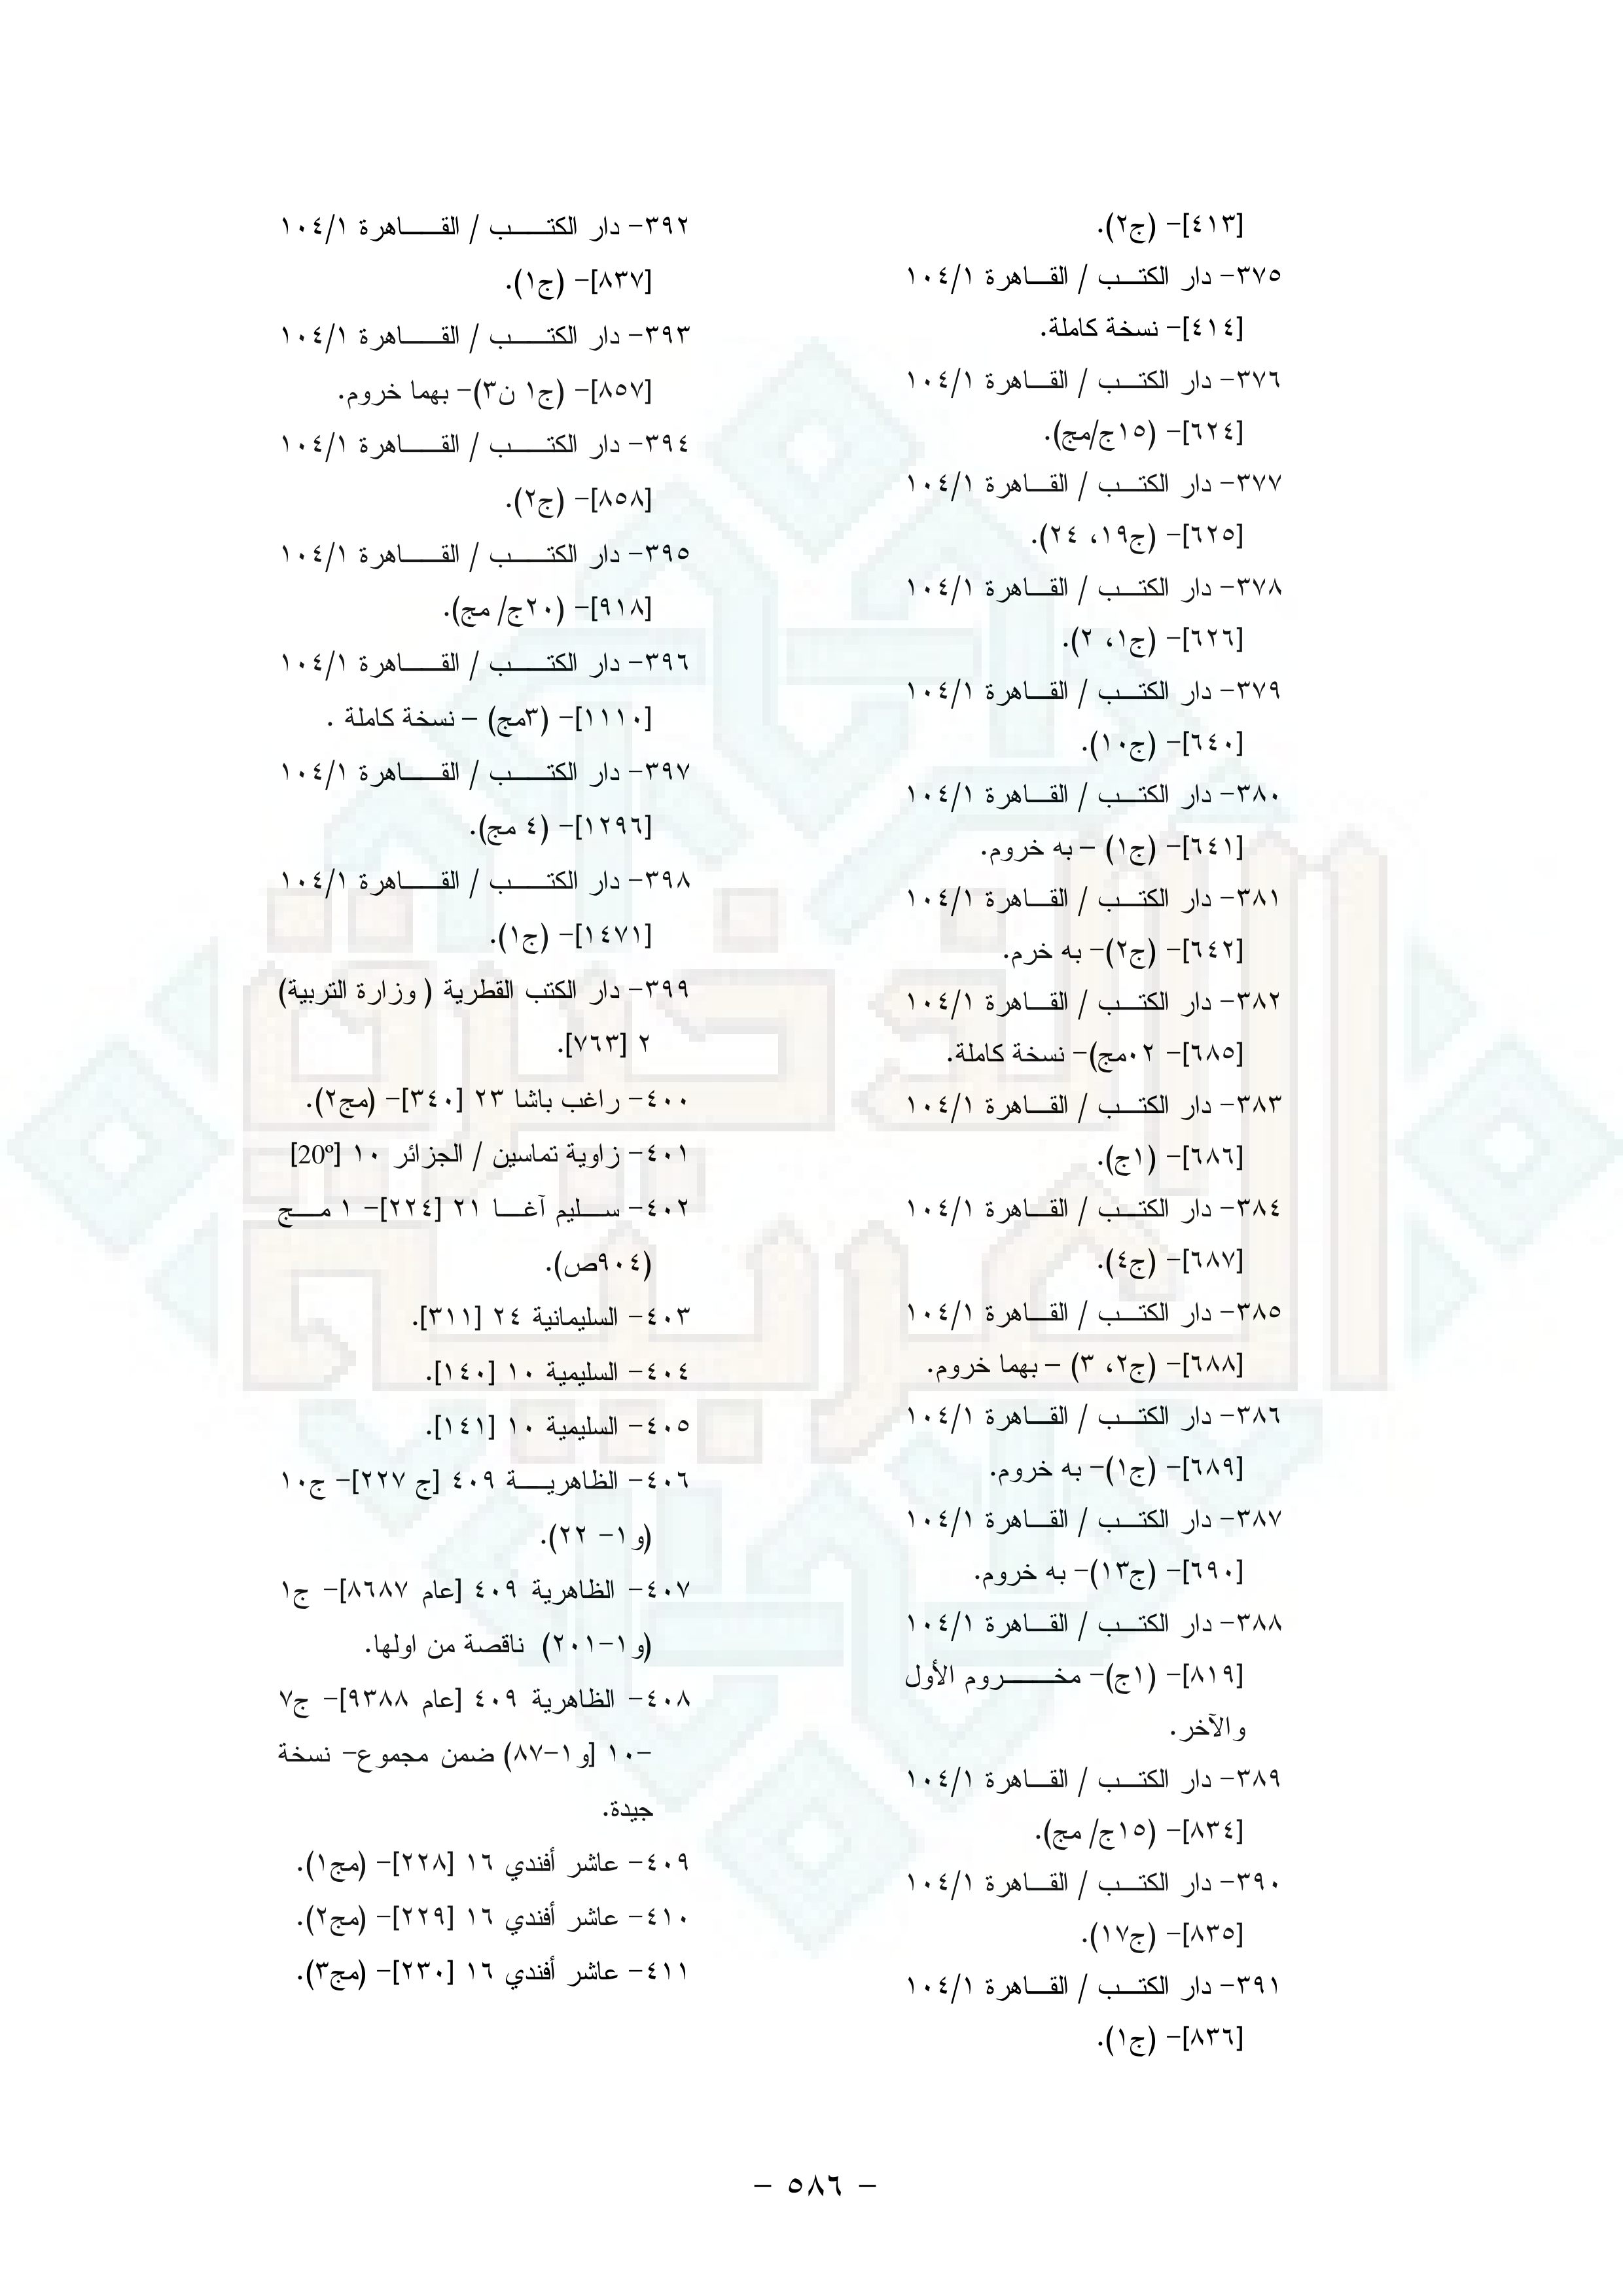 [٤١٣]- (ج٢).
٣٧٥- دار الكتب / القاهرة ١٠٤/١
[٤١٤]- نسخة كاملة.
٣٧٦- دار الكتب / القاهرة ١٠٤/١
[٦٢٤]- (١٥ج/مج).
٣٧٧- دار الكتب / القاهرة ١٠٤/١
[٦٢٥]- (ج١٩، ٢٤).
٣٧٨- دار الكتب / القاهرة ١٠٤/١
[٦٢٦]- (ج١، ٢).
٣٧٩- دار الكتب / القاهرة ١٠٤/١
[٦٤٠]- (ج١٠).
٣٨٠- دار الكتب / القاهرة ١٠٤/١
[٦٤١]- (ج١) – به خروم.
٣٨١- دار الكتب / القاهرة ١٠٤/١
[٦٤٢]- (ج٢)- به خرم.
٣٨٢- دار الكتب / القاهرة ١٠٤/١
[٦٨٥]- ٠٢مج)- نسخة كاملة.
٣٨٣- دار الكتب / القاهرة ١٠٤/١
[٦٨٦]- (١ج).
٣٨٤- دار الكتب / القاهرة ١٠٤/١
[٦٨٧]- (ج٤).
٣٨٥- دار الكتب / القاهرة ١٠٤/١
[٦٨٨]- (ج٢، ٣) – بهما خروم.
٣٨٦- دار الكتب / القاهرة ١٠٤/١
[٦٨٩]- (ج١)- به خروم.
٣٨٧- دار الكتب / القاهرة ١٠٤/١
[٦٩٠]- (ج١٣)- به خروم.
٣٨٨- دار الكتب / القاهرة ١٠٤/١
[٨١٩]- (١ج)- مخروم الأول
والآخر.
٣٨٩- دار الكتب / القاهرة ١٠٤/١
[٨٣٤]- (١٥ج/ مج).
٣٩٠- دار الكتب / القاهرة ١٠٤/١
[٨٣٥]- (ج١٧).
٣٩١- دار الكتب / القاهرة ١٠٤/١
[٨٣٦]- (ج١).
٣٩٢- دار الكتب / القاهرة ١٠٤/١
[٨٣٧]- (ج١).
٣٩٣- دار الكتب / القاهرة ١٠٤/١
[٨٥٧]- (ج١ ن٣)- بهما خروم.
٣٩٤- دار الكتب / القاهرة ١٠٤/١
[٨٥٨]- (ج٢).
٣٩٥- دار الكتب / القاهرة ١٠٤/١
[٩١٨]- (٢٠ج/ مج).
٣٩٦- دار الكتب / القاهرة ١٠٤/١
[١١١٠]- (٣مج) – نسخة كاملة .
٣٩٧- دار الكتب / القاهرة ١٠٤/١
[١٢٩٦]- (٤ مج).
٣٩٨- دار الكتب / القاهرة ١٠٤/١
[١٤٧١]- (ج١).
٣٩٩- دار الكتب القطرية ( وزارة التربية)
٢ [٧٦٣].
٤٠٠- راغب باشا ٢٣ [٣٤٠]- (مج٢).
٤٠١- زاوية تماسين / الجزائر ١٠ [20º]
٤٠٢- سليم آغا ٢١ [٢٢٤]- ١ مج
(٩٠٤ص).
٤٠٣- السليمانية ٢٤ [٣١١].
٤٠٤- السليمية ١٠ [١٤٠].
٤٠٥- السليمية ١٠ [١٤١].
٤٠٦- الظاهرية ٤٠٩ [ج ٢٢٧]- ج١٠
(و١- ٢٢).
٤٠٧- الظاهرية ٤٠٩ [عام ٨٦٨٧]- ج١
(و١-٢٠١) ناقصة من اولها.
٤٠٨- الظاهرية ٤٠٩ [عام ٩٣٨٨]- ج٧
-١٠ [و١-٨٧) ضمن مجموع- نسخة
جيدة.
٤٠٩- عاشر أفندي ١٦ [٢٢٨]- (مج١).
٤١٠- عاشر أفندي ١٦ [٢٢٩]- (مج٢).
٤١١- عاشر أفندي ١٦ [٢٣٠]- (مج٣).
الذخيرة
العربية
- ٥٨٦ -